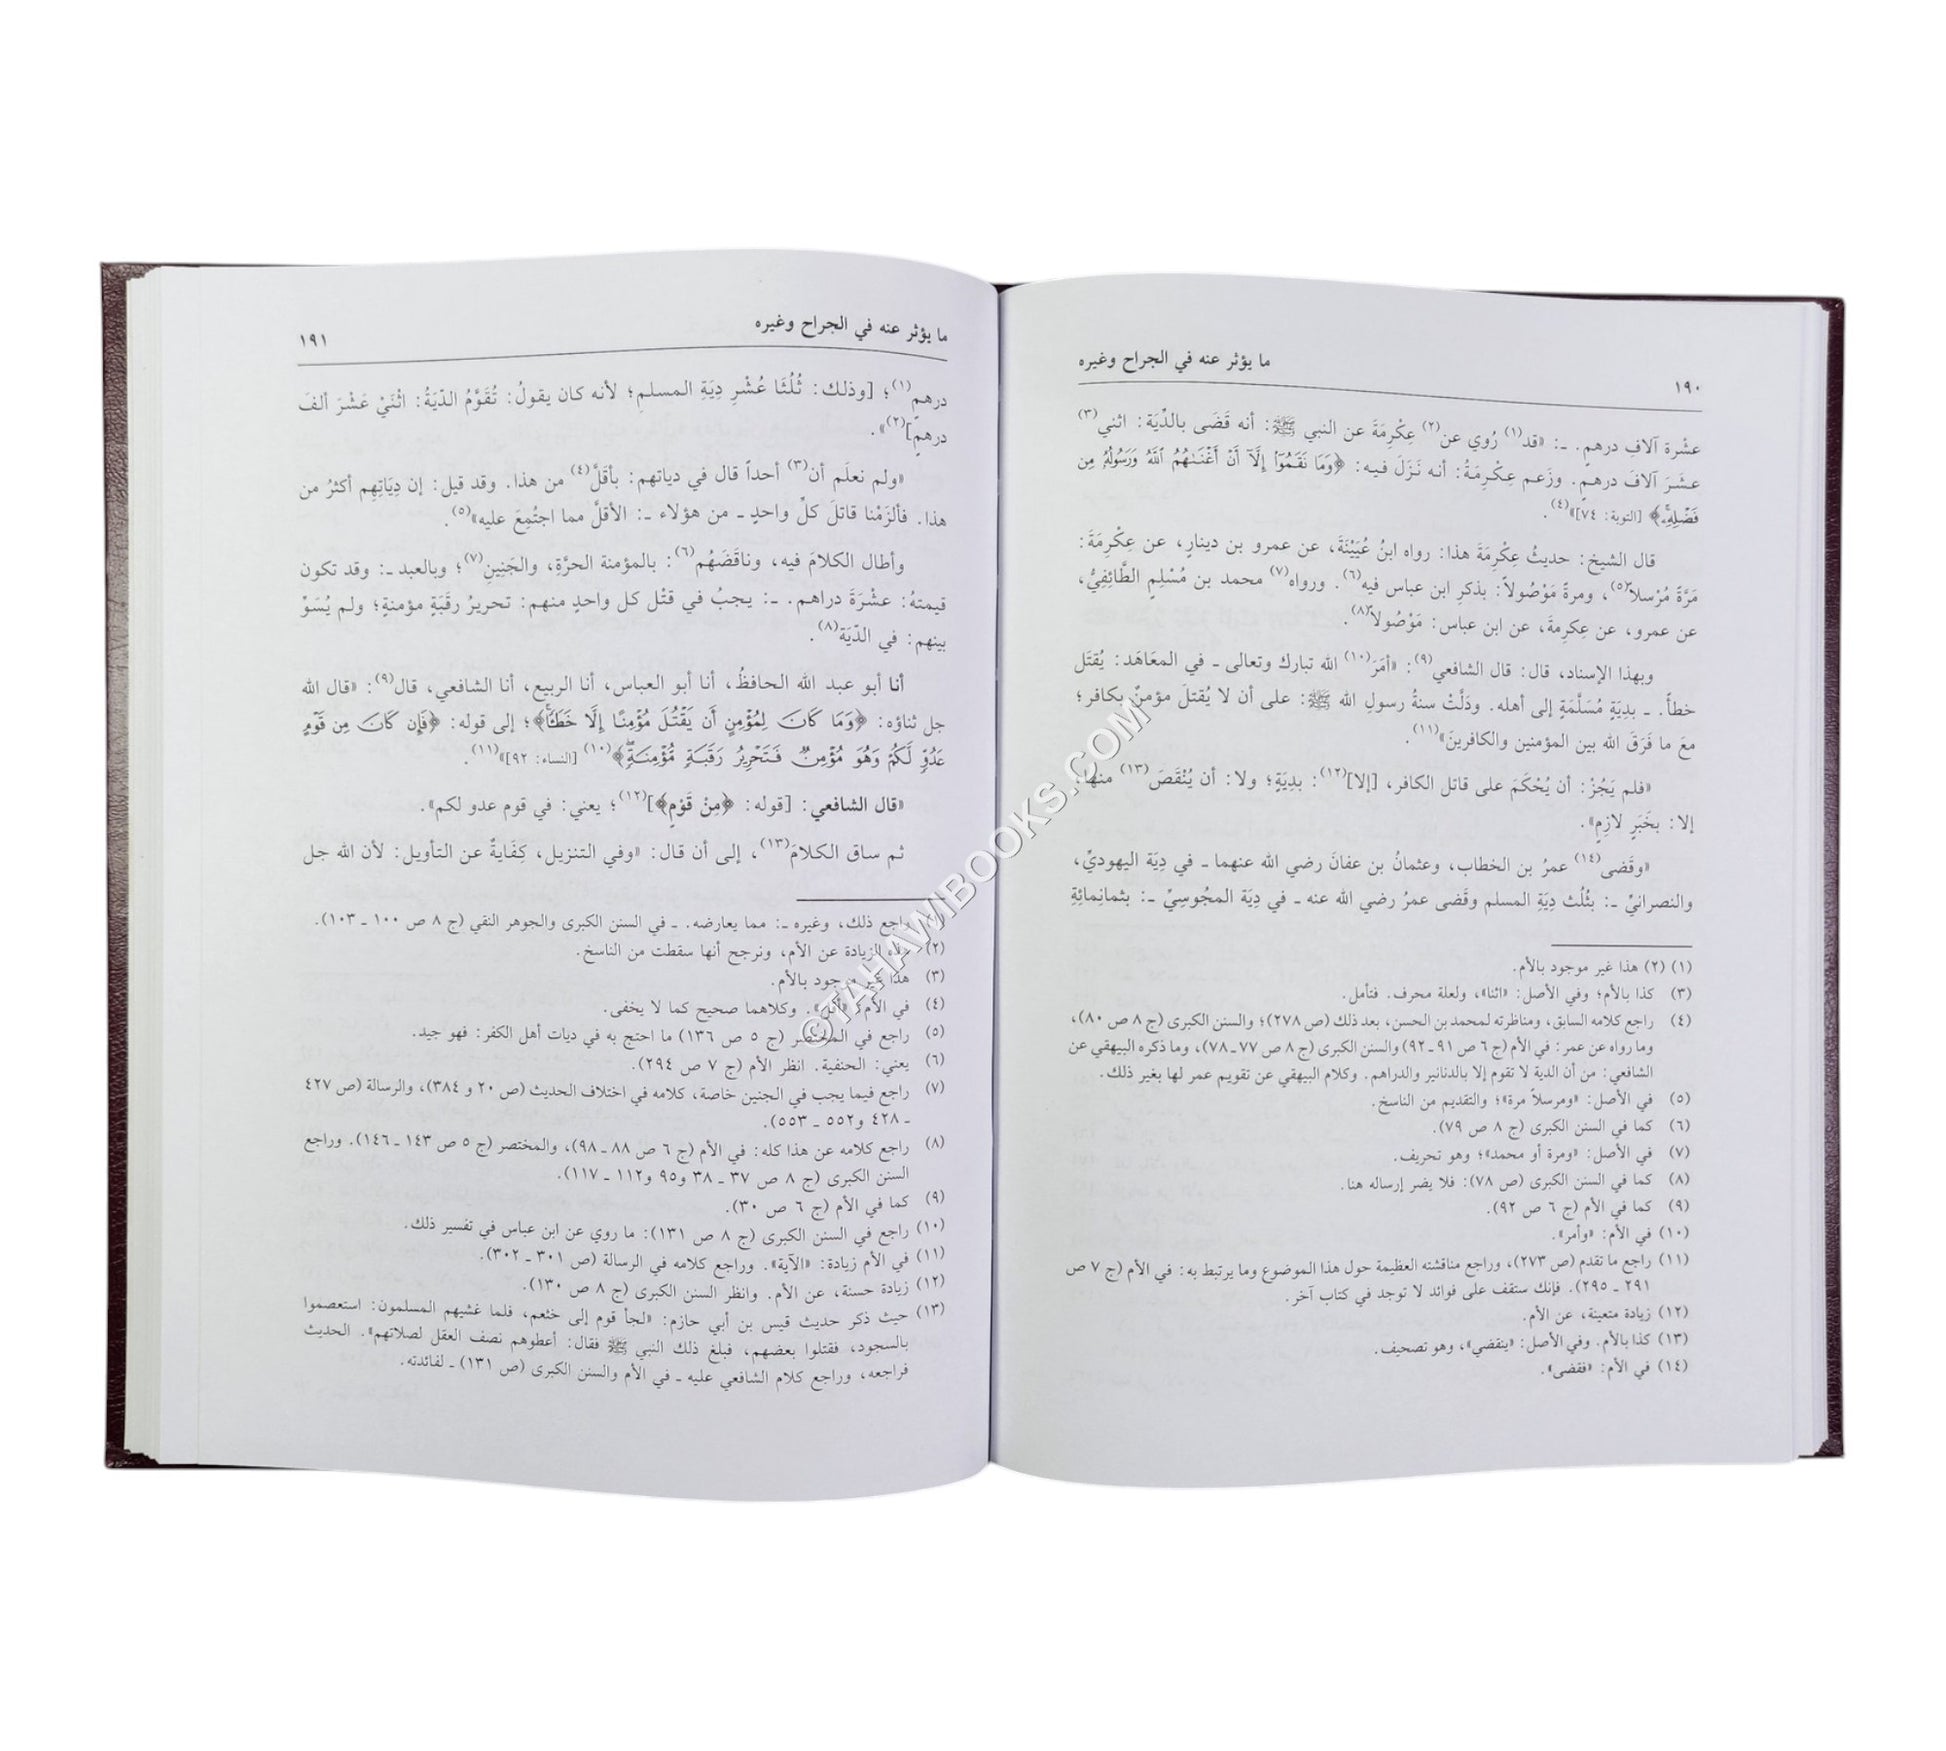 ما يؤثر عنه في الجراح وغيره
١٩٠
عشْرة آلافِ درهمٍ. ـ: «قد(١) رُوي عن(٢) عِكْرِمَةَ عن النبي ﷺ: أنه قَضَى بالدِّيَة: اثني(٣)
عشَرَ آلافَ درهمٍ. وزَعم عِكْرِمَةُ: أنه نَزَلَ فيه: ﴿وَمَا نَقَمُوٓا۟ إِلَّآ أَنْ أَغْنَىٰهُمُ ٱللَّهُ وَرَسُولُهُۥ مِن
فَضْلِهِۦ﴾ [التوبة: ٧٤]»(٤).
قال الشيخ: حديثُ عِكْرِمَةَ هذا: رواه ابنُ عُيَيْنَةَ، عن عمرو بن دينارٍ، عن عِكْرِمَةَ:
مَرَّةً مُرْسلاً(٥)، ومرةً مَوْصُولاً: بذكرِ ابن عباس فيه(٦). ورواه(٧) محمد بن مُسْلِمٍ الطَّائِفِيُّ،
عن عمرو، عن عِكرِمةَ، عن ابن عباس: مَوْصُولاً(٨).
وبهذا الإسناد، قال: قال الشافعي(٩): «أمَرَ(١٠) الله تبارك وتعالى ـ في المعَاهَد: يُقتَل
خطأً. ـ بدِيَةٍ مُسَلَّمَةٍ إلى أهله. ودَلَّتْ سنةُ رسولِ الله ﷺ: على أن لا يُقتلَ مؤمنٌ بكافر؛
معَ ما فَرَقَ الله بين المؤمنين والكافرينَ»(١١).
«فلم يَجُزْ: أن يُحْكَمَ على قاتل الكافر، [إلا](١٢): بدِيَةٍ؛ ولا: أن يُنْقَصَ(١٣) منها،
إلا: بخَبَرٍ لازِمٍ».
«وقَضى(١٤) عمرُ بن الخطاب، وعثمانُ بن عفانَ رضي الله عنهما ـ في دِيَة اليهوديِّ،
والنصرانيِّ ـ: بثُلُث دِيَةِ المسلم وقَضى عمرُ رضي الله عنه ـ في دِيَة المجُوسِيِّ ـ: بثمانِمائِةِ
(١) (٢) هذا غير موجود بالأم.
(٣) كذا بالأم؛ وفي الأصل: «اثنا»، ولعلة محرف. فتأمل.
(٤) راجع كلامه السابق، ومناظرته لمحمد بن الحسن، بعد ذلك (ص ٢٧٨)؛ والسنن الكبرى (ج ٨ ص ٨٠)،
وما رواه عن عمر: في الأم (ج ٦ ص ٩١ ـ ٩٢) والسنن الكبرى (ج ٨ ص ٧٧ ـ ٧٨)، وما ذكره البيهقي عن
الشافعي: من أن الدية لا تقوم إلا بالدنانير والدراهم. وكلام البيهقي عن تقويم عمر لها بغير ذلك.
(٥) في الأصل: «ومرسلاً مرة»؛ والتقديم من الناسخ.
(٦) كما في السنن الكبرى (ج ٨ ص ٧٩).
(٧) في الأصل: «ومرة أو محمد»؛ وهو تحريف.
(٨) كما في السنن الكبرى (ص ٧٨): فلا يضر إرساله هنا.
(٩) كما في الأم (ج ٦ ص ٩٢).
(١٠) في الأم: «وأمر».
(١١) راجع ما تقدم (ص ٢٧٣)، وراجع مناقشته العظيمة حول هذا الموضوع وما يرتبط به: في الأم (ج ٧ ص
٢٩١ ـ ٢٩٥). فإنك ستقف على فوائد لا توجد في كتاب آخر.
(١٢) زيادة متعينة، عن الأم.
(١٣) كذا بالأم. وفي الأصل: «ينقضي»، وهو تصحيف.
(١٤) في الأم: «فقضى».
ما يؤثر عنه في الجراح وغيره
١٩١
درهم(١)؛ [وذلك: ثُلُثَا عُشْرِ دِيَةِ المسلمِ؛ لأنه كان يقولُ: تُقَوَّمُ الدّيَةُ: اثْنَيْ عَشْرَ ألفَ
درهمٍ](٢)».
«ولم نعلَم أن(٣) أحداً قال في دياتهم: بأقَلَّ(٤) من هذا. وقد قيل: إن دِيَاتِهِم أكثرُ من
هذا. فألزَمْنا قاتلَ كلِّ واحدٍ ـ من هؤلاء ـ: الأقلَّ مما اجتُمِعَ عليه»(٥).
وأطال الكلامَ فيه، وناقَضَهُم(٦): بالمؤمنة الحرَّةِ، والجَنِينِ(٧)؛ وبالعبد ـ: وقد تكون
قيمتهُ: عشْرَةَ دراهم. ـ: يجبُ في قتْل كل واحدٍ منهم: تحريرُ رقَبَةٍ مؤمنةٍ؛ ولم يُسَوِّ
بينهم: في الدّيَة(٨).
أنا أبو عبد الله الحافظُ، أنا أبو العباس، أنا الربيع، أنا الشافعي، قال(٩): «قال الله
جل ثناؤه: ﴿وَمَا كَانَ لِمُؤْمِنٍ أَن يَقْتُلَ مُؤْمِنًا إِلَّا خَطَـًٔا﴾؛ إلى قوله: ﴿فَإِن كَانَ مِن قَوْمٍ
عَدُوٍّ لَّكُمْ وَهُوَ مُؤْمِنٌ فَتَحْرِيرُ رَقَبَةٍ مُّؤْمِنَةٍ﴾(١٠) [النساء: ٩٢]»(١١).
«قال الشافعي: [قوله: ﴿مِنْ قَوْمٍ﴾](١٢)؛ يعني: في قوم عدو لكم».
ثم ساق الكلامَ(١٣)، إلى أن قال: «وفي التنزيل، كِفَايةٌ عن التأويل: لأن الله جل
راجع ذلك، وغيره ـ: مما يعارضه. ـ في السنن الكبرى والجوهر النقي (ج ٨ ص ١٠٠ ـ ١٠٣).
(٢) هذه الزيادة عن الأم، ونرجح أنها سقطت من الناسخ.
(٣) هذا غير موجود بالأم.
(٤) في الأم: «أقل». وكلاهما صحيح كما لا يخفى.
(٥) راجع في المختصر (ج ٥ ص ١٣٦) ما احتج به في ديات أهل الكفر: فهو جيد.
(٦) يعني: الحنفية. انظر الأم (ج ٧ ص ٢٩٤).
(٧) راجع فيما يجب في الجنين خاصة، كلامه في اختلاف الحديث (ص ٢٠ و ٣٨٤)، والرسالة (ص ٤٢٧
ـ ٤٢٨ و٥٥٢ ـ ٥٥٣).
(٨) راجع كلامه عن هذا كله: في الأم (ج ٦ ص ٨٨ ـ ٩٨)، والمختصر (ج ٥ ص ١٤٣ ـ ١٤٦). وراجع
السنن الكبرى (ج ٨ ص ٣٧ ـ ٣٨ و٩٥ و١١٢ ـ ١١٧).
(٩) كما في الأم (ج ٦ ص ٣٠).
(١٠) راجع في السنن الكبرى (ج ٨ ص ١٣١): ما روي عن ابن عباس في تفسير ذلك.
(١١) في الأم زيادة: «الآية». وراجع كلامه في الرسالة (ص ٣٠١ ـ ٣٠٢).
(١٢) زيادة حسنة، عن الأم. وانظر السنن الكبرى (ج ٨ ص ١٣٠).
(١٣) حيث ذكر حديث قيس بن أبي حازم: «لجأ قوم إلى خثعم، فلما غشيهم المسلمون: استعصموا
بالسجود، فقتلوا بعضهم، فبلغ ذلك النبي ﷺ فقال: أعطوهم نصف العقل لصلاتهم». الحديث
فراجعه، وراجع كلام الشافعي عليه ـ في الأم والسنن الكبرى (ص ١٣١) ـ لفائدته.
©TAHAWIBOOKS.COM